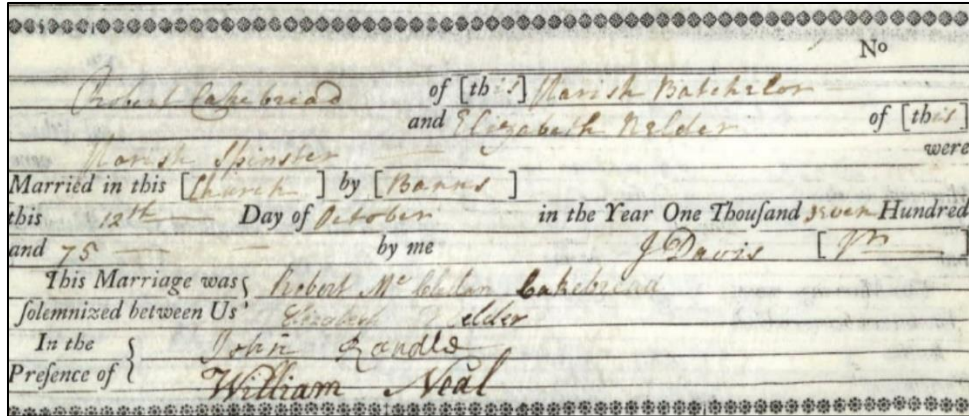 No
Robert Cakebread of [this] Parish Batchelor
and Elizabeth Nelder of [this]
Parish Spinster were
Married in this [Church] by [Banns]
this 12th Day of October in the Year One Thouſand seven Hundred
and 75 by me J Davis
This Marriage was { Robert Mc Cakebread
ſolemnized between Us Elizabeth Nelder
In the { John Randle
Preſence of William Neal